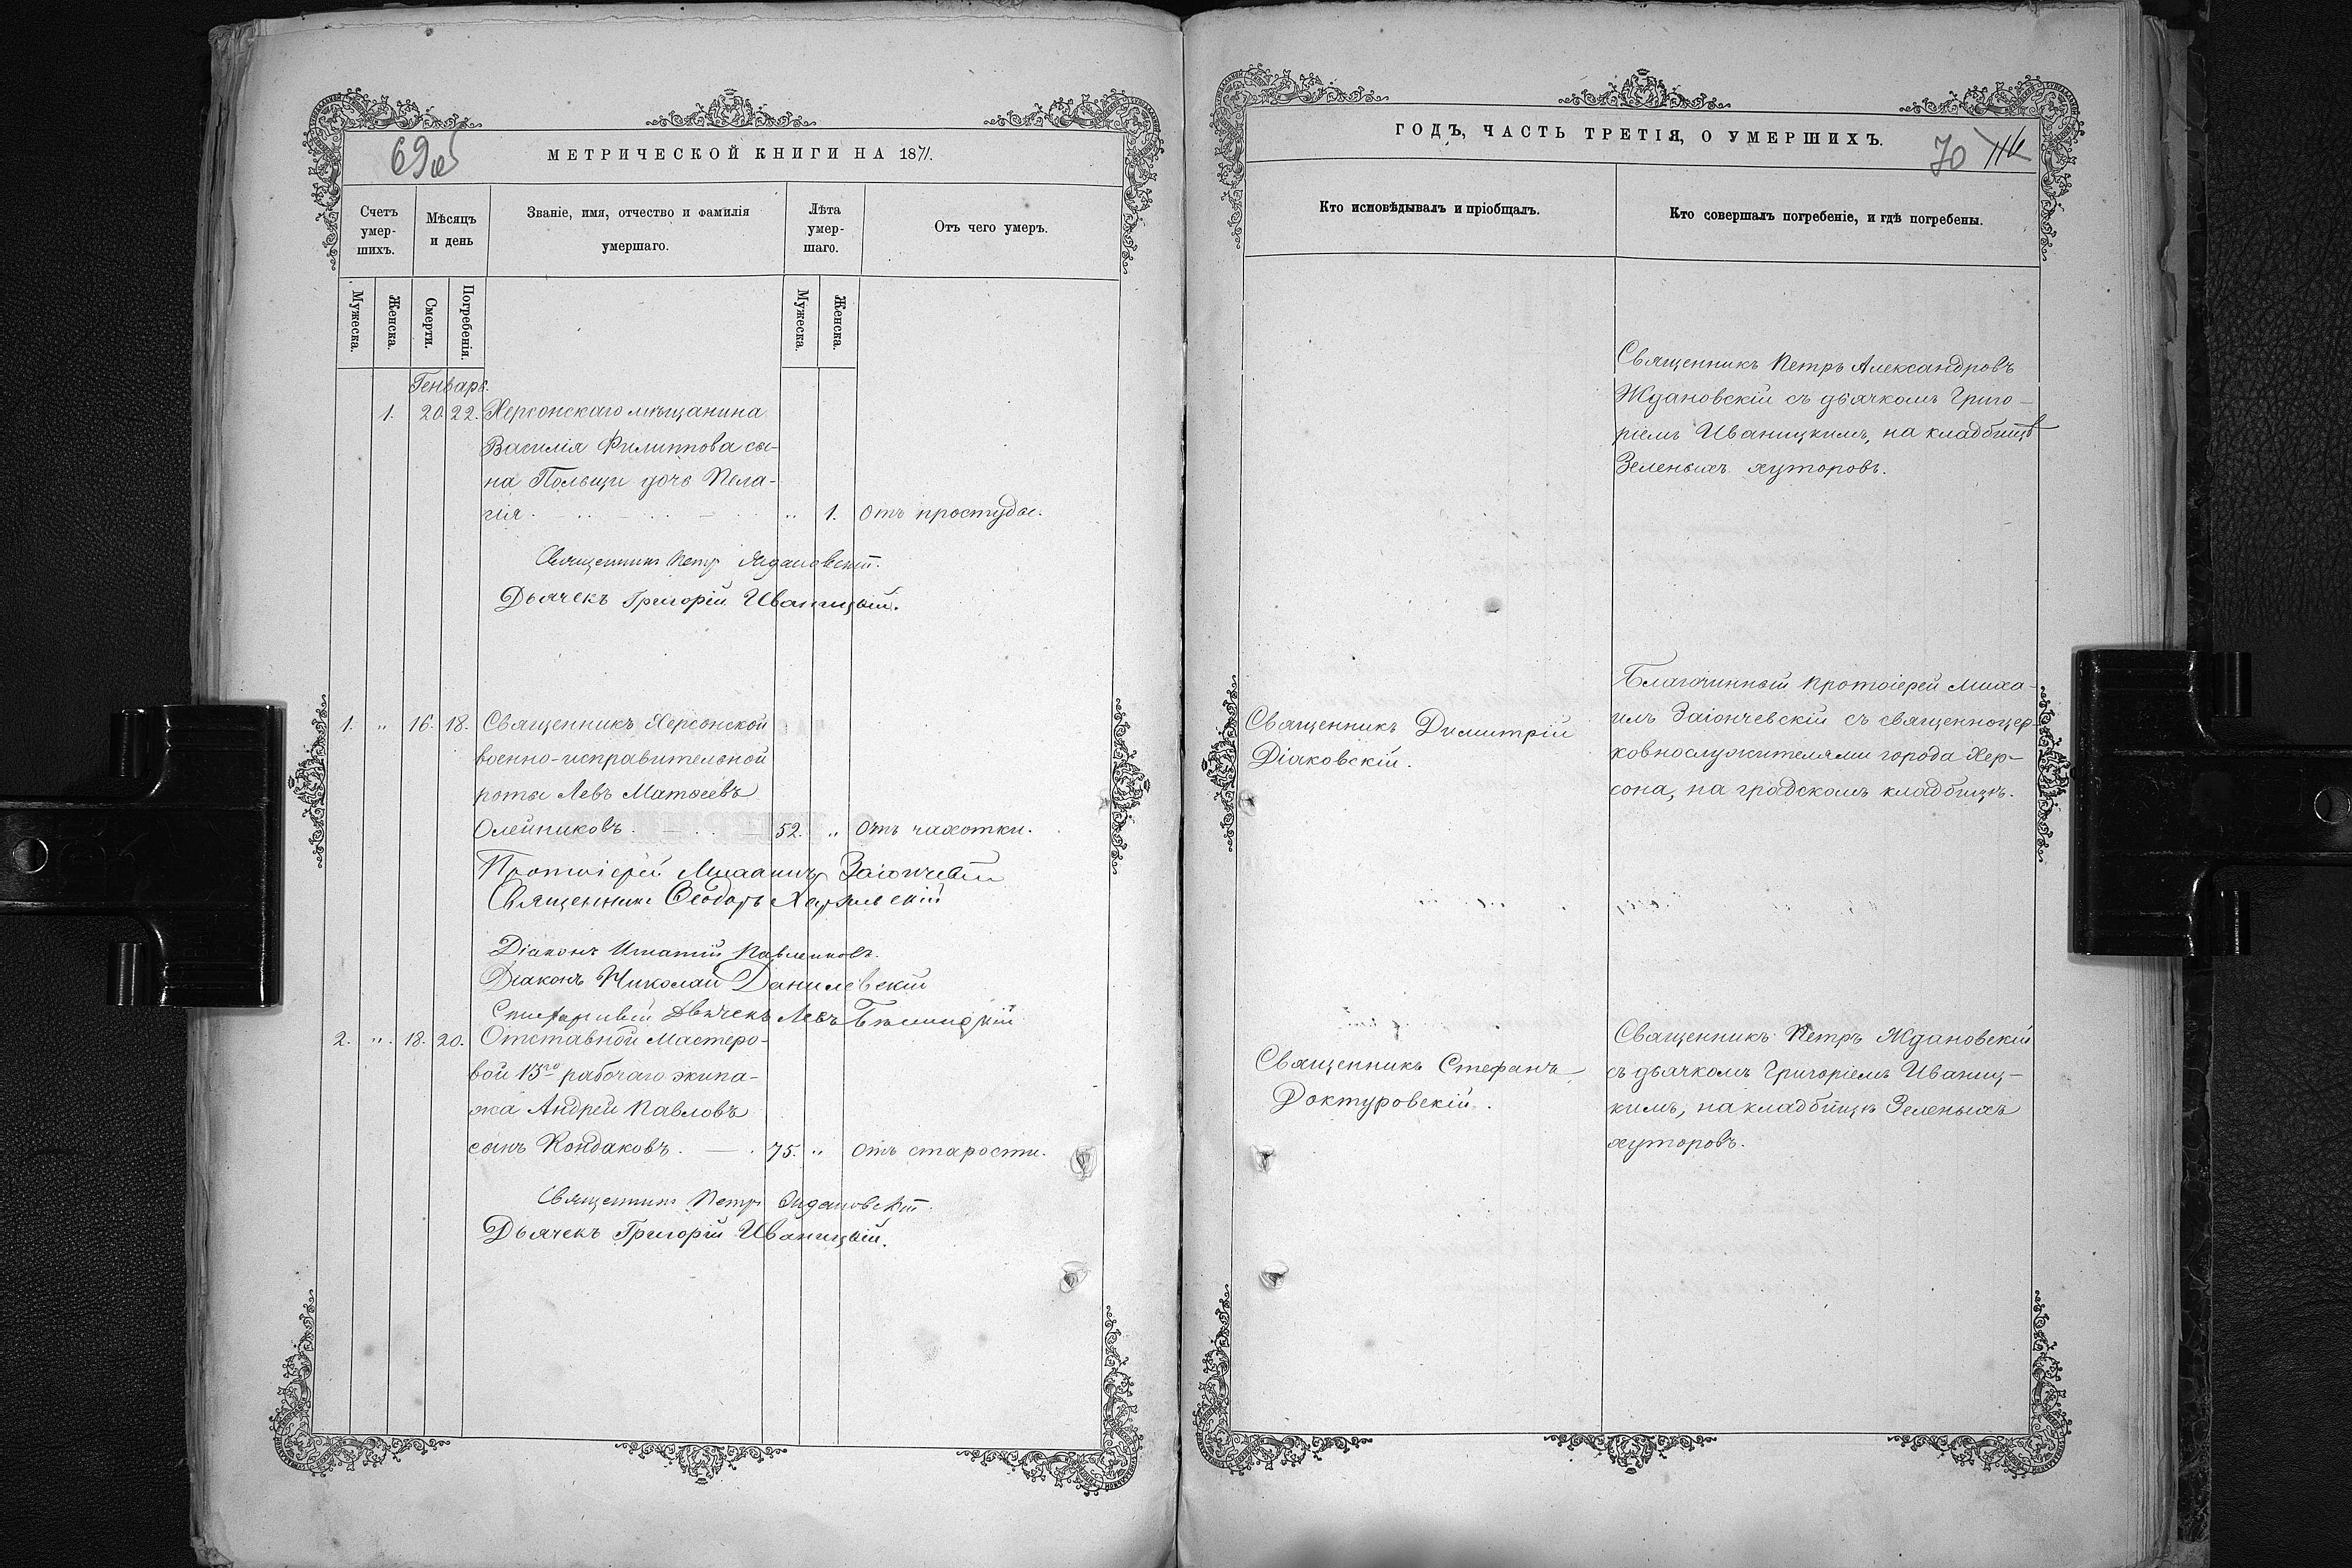 69об
МЕТРИЧЕСКОЙ КНИГИ НА 1871.
Счетъ умер-шихъ.
Мѣсяцъ и день
Званіе, имя, отчество и фамилія умершаго.
Лѣта умер-шаго.
Отъ чего умеръ.
Мужеска.
Женска.
Смерти.
Погребенія.
Мужеска.
Женска.
Генварь.
1. 20. 22. Херсонскаго мѣщанина
Василія Филиппова сы-
на Польщи дочь Пела-
гія „ 1. Отъ простуды.
Священникъ Петр Ждановскій.
Дьячекъ Григорій Иваницкій.
1. „ 16. 18. Священникъ Херсонской
военно-исправительной
роты Левъ Матѳеевъ
Олейниковъ. 52. „ Отъ чахотки.
Протоіерей Михаилъ Заіончевскій
Священникъ Ѳеодоръ
Діаконъ Игнатій Павленковъ.
Діаконъ Николай Данилевскій
Дьячекъ Левъ
2. „ 18. 20. Отставной Мастеро-
вой 15го рабочаго экипа-
жа Андрей Павловъ
сынъ Кондаковъ. 75. „ Отъ старости.
Священникъ Петръ Ждановскій.
Дьячекъ Григорій Иваницкій.
ГОДЪ, ЧАСТЬ ТРЕТІЯ, О УМЕРШИХЪ.
70
Кто исповѣдывалъ и пріобщалъ.
Кто совершалъ погребеніе, и гдѣ погребены.
Священникъ Петръ Александровъ
Ждановскій съ дьячкомъ Григо-
ріемъ Иваницкимъ, на кладбищѣ
Зеленыхъ хуторовъ.
Священникъ Димитрій
Діаковскій.
Благочинный протоіерей Миха-
илъ Заіончевскій съ священноцер-
ковнослужителями города Хер-
сона, на градскомъ кладбищѣ.
Священникъ Стефанъ
Доктуровскій.
Священникъ Петръ Ждановскій
съ дьячкомъ Григоріемъ Иваниц-
кимъ, на кладбищѣ Зеленыхъ
хуторовъ.